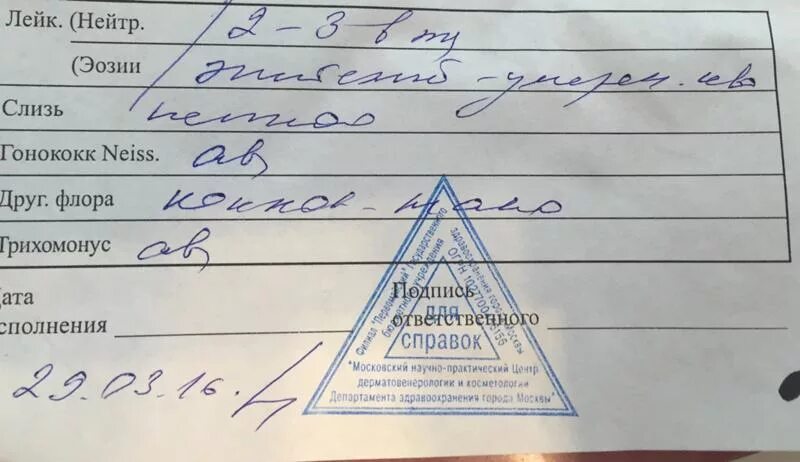 Лейк. (Нейтр. 2-3 в пз
(Эозии эпителий - умерен. кво
Слизь немного
Гонококк Neiss. авs
Друг. флора кокков - мало
Трихомонус авs
Дата
исполнения
Подпись
ответственного
29.03.16.
Филиал "Первомайский" Государственного
бюджетного учреждения
здравоохранения города Москвы
для
справок
"Московский научно-практический Центр
дерматовенерологии и косметологии
Департамента здравоохранения города Москвы"